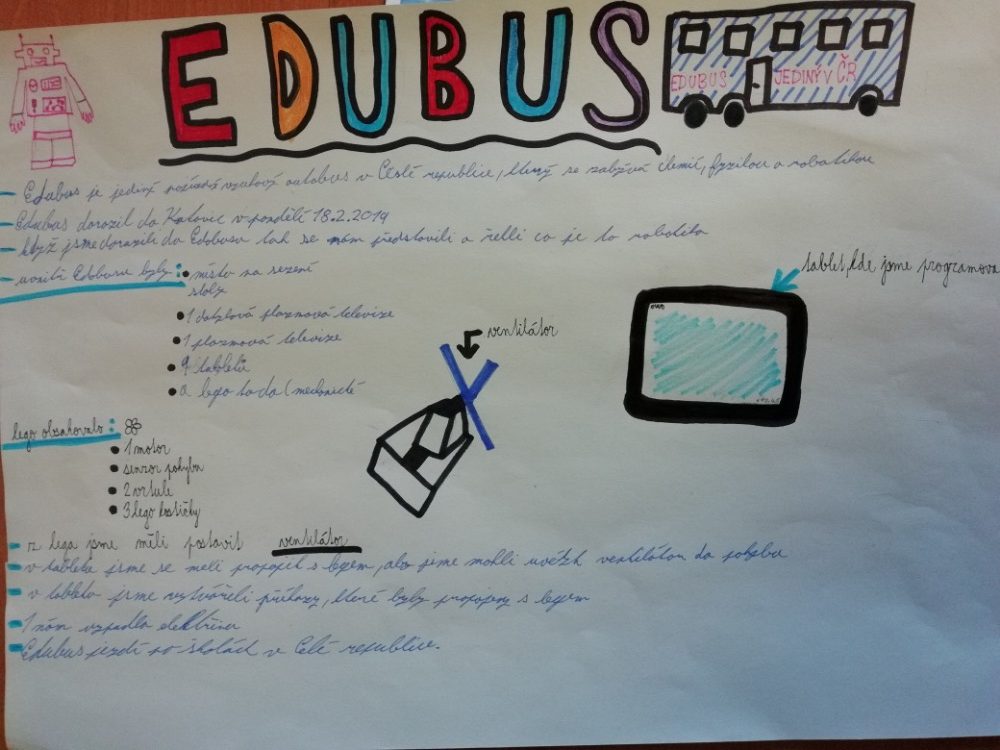 EDUBUS
EDUBUS JEDINÝ V ČR
- Edubus je jediný pojízdný výukový autobus v České republice, který se zabývá chemií, fyzikou a robotikou
- Edubus dorazil do Katovic v pondělí 18.2.2019
- když jsme dorazili do Edubusu tak se nám představili a řekli co je to robotika
- uvnitř Edubusu byly:
• místo na sezení
stoly
• 1 dotyková plazmová televize
• 1 plazmová televize
• 9 tabletů
• a lego sada (mechanické
tablet, kde jsme programova
ventilátor
lego obsahovalo:
• 1 motor
• senzor pohybu
• 2 vrtule
• 3 lego kostičky
- z lega jsme měli postavit ventilátor
- v tabletu jsme se měli propojit s legem, aby jsme mohli uvést ventilátor do pohybu
- v tabletu jsme vytvářeli příkazy, které byly propojeny s legem
- 1 nám vypadla elektřina
- Edubus jezdí po školách v Celé republice.